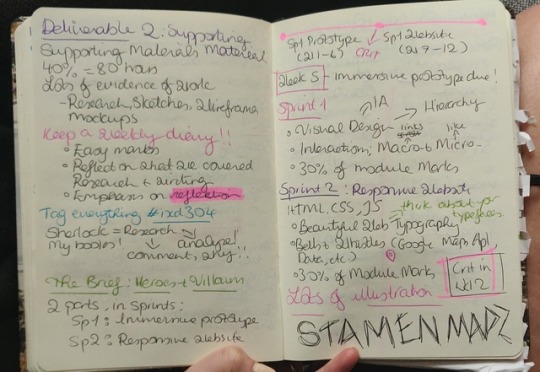 Deliverable 2: Supporting
Supporting Materials Material
40% = 80 hours
Lots of evidence of work
- Research, Sketches, Wireframes
mockups
Keep a weekly diary!!
• Easy marks
• Reflect on what we covered
Research + writing
• Emphasis on reflection
Tag everything #ixd304
Sherlock = Research
my books! analyse!
comment, why!!
The Brief: Heroes + Villains
2 parts, in sprints:
Sp1: Immersive prototype
Sp2: Responsive website
Sp1 Prototype Sp2 Website
(W1-6) CRIT (W7-12)
Week 5 - Immersive prototype due!
Sprint 1 IA Hierarchy
• Visual Design links like
• Interaction; Macro + Micro -
• 30% of module marks
Sprint 2: Responsive Website
HTML, CSS, JS think about
typefaces
• Beautiful Web Typography
• Bells + Whistles (Google Map API
Data, etc)
• 30% of Module Marks
Crit in
WK12
Lots of illustration
STAMEN MAPS